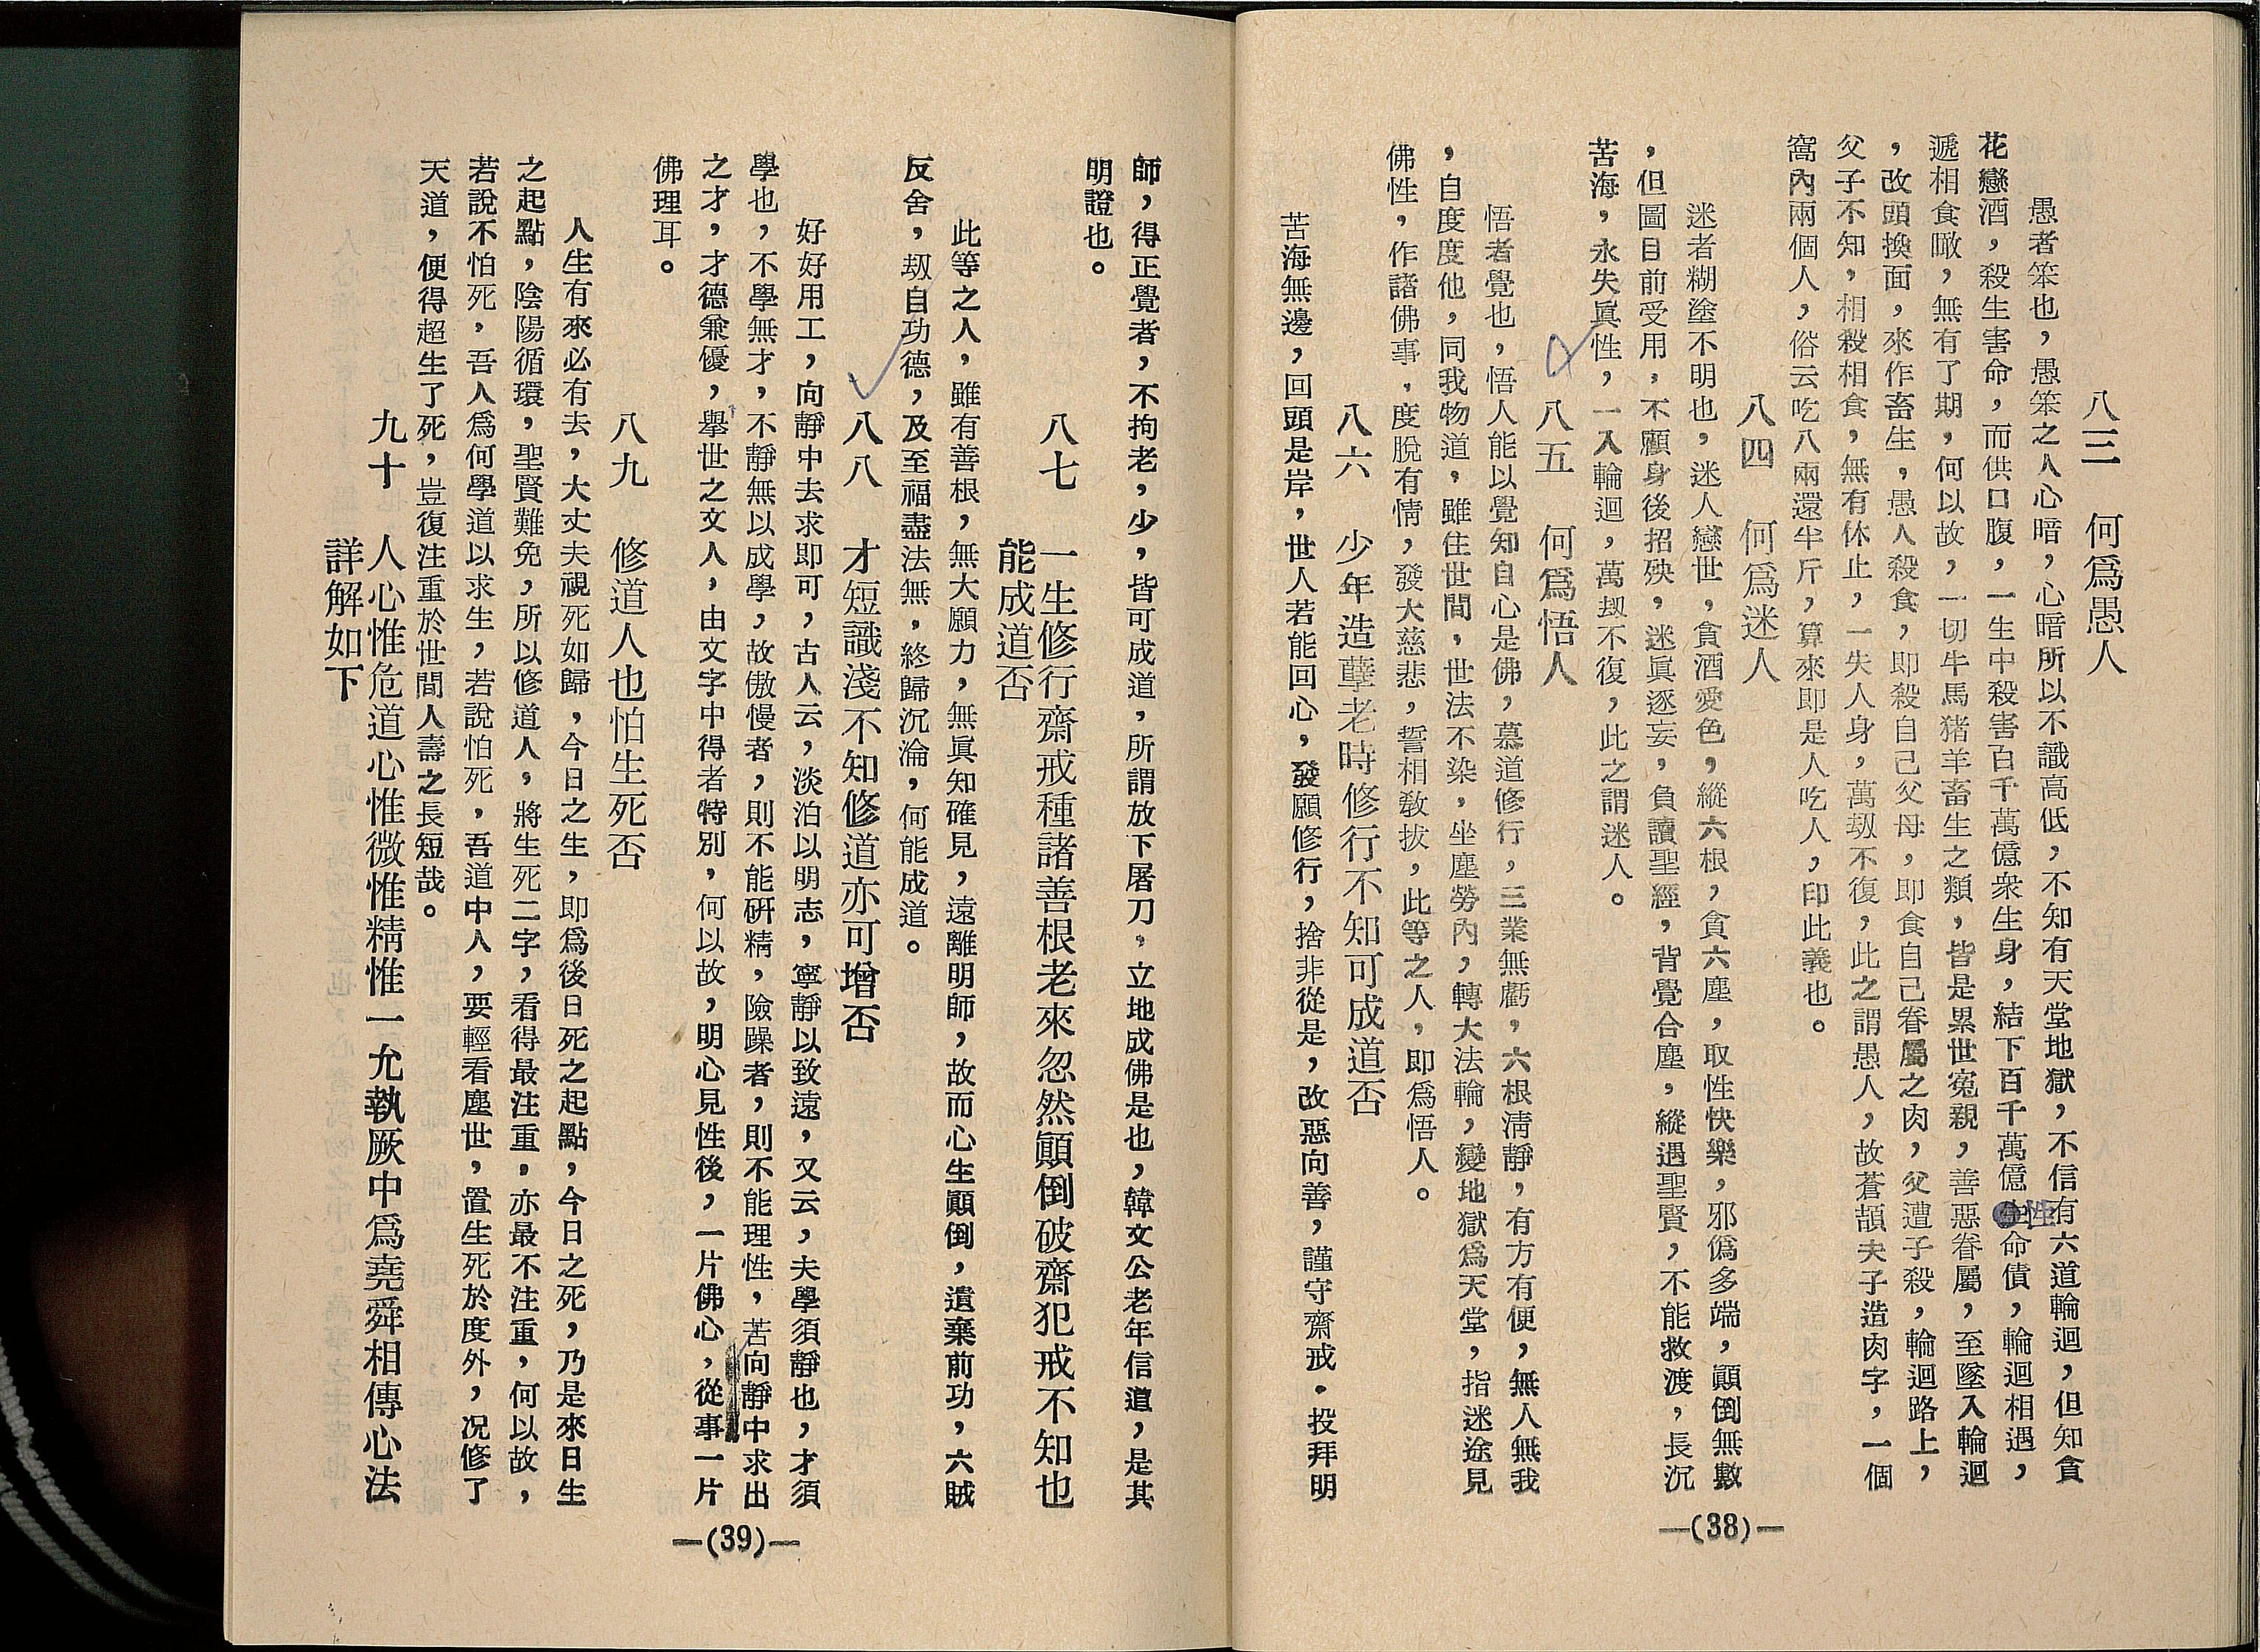 八三　何爲愚人
愚者笨也，愚笨之人心暗，心暗所以不識高低，不知有天堂地獄，不信有六道輪迴，但知貪
花戀酒，殺生害命，而供口腹，一生中殺害百千萬億衆生身，結下百千萬億性命債，輪迴相遇，
遞相食噉，無有了期，何以故，一切牛馬猪羊畜生之類，皆是累世寃親，善惡眷屬，至墜入輪迴
，改頭換面，來作畜生，愚人殺食，即殺自己父母，即食自己眷屬之肉，父遭子殺，輪迴路上，
父子不知，相殺相食，無有休止，一失人身，萬刼不復，此之謂愚人，故蒼頡夫子造肉字，一個
窩內兩個人，俗云吃八兩還半斤，算來即是人吃人，印此義也。
八四　何爲迷人
迷者糊塗不明也，迷人戀世，貪酒愛色，縱六根，貪六塵，取性快樂，邪僞多端，顚倒無數
，但圖目前受用，不顧身後招殃，迷眞逐妄，負讀聖經，背覺合塵，縱遇聖賢，不能救渡，長沉
苦海，永失眞性，一入輪迴，萬刼不復，此之謂迷人。
八五　何爲悟人
悟者覺也，悟人能以覺知自心是佛，慕道修行，三業無虧，六根淸靜，有方有便，無人無我
，自度度他，同我物道，雖住世間，世法不染，坐塵勞內，轉大法輪，變地獄爲天堂，指迷途見
佛性，作諸佛事，度脫有情，發大慈悲，誓相救拔，此等之人，即爲悟人。
八六　少年造孽老時修行不知可成道否
苦海無邊，回頭是岸，世人若能回心，發願修行，捨非從是，改惡向善，謹守齋戒，投拜明
—(38)—
師，得正覺者，不拘老，少，皆可成道，所謂放下屠刀，立地成佛是也，韓文公老年信道，是其
明證也。
八七　一生修行齋戒種諸善根老來忽然顚倒破齋犯戒不知也
能成道否
此等之人，雖有善根，無大願力，無眞知確見，遠離明師，故而心生顚倒，遺棄前功，六賊
反舍，刼自功德，及至福盡法無，終歸沉淪，何能成道。
八八　才短識淺不知修道亦可增否
好好用工，向靜中去求即可，古人云，淡泊以明志，寧靜以致遠，又云，夫學須靜也，才須
學也，不學無才，不靜無以成學，故傲慢者，則不能硏精，險躁者，則不能理性，苦向靜中求出
之才，才德兼優，舉世之文人，由文字中得者特別，何以故，明心見性後，一片佛心，從事一片
佛理耳。
八九　修道人也怕生死否
人生有來必有去，大丈夫視死如歸，今日之生，即爲後日死之起點，今日之死，乃是來日生
之起點，陰陽循環，聖賢難免，所以修道人，將生死二字，看得最注重，亦最不注重，何以故，
若說不怕死，吾人爲何學道以求生，若說怕死，吾道中人，要輕看塵世，置生死於度外，况修了
天道，便得超生了死，豈復注重於世間人壽之長短哉。
九十　人心惟危道心惟微惟精惟一允執厥中爲堯舜相傳心法
詳解如下
—(39)—